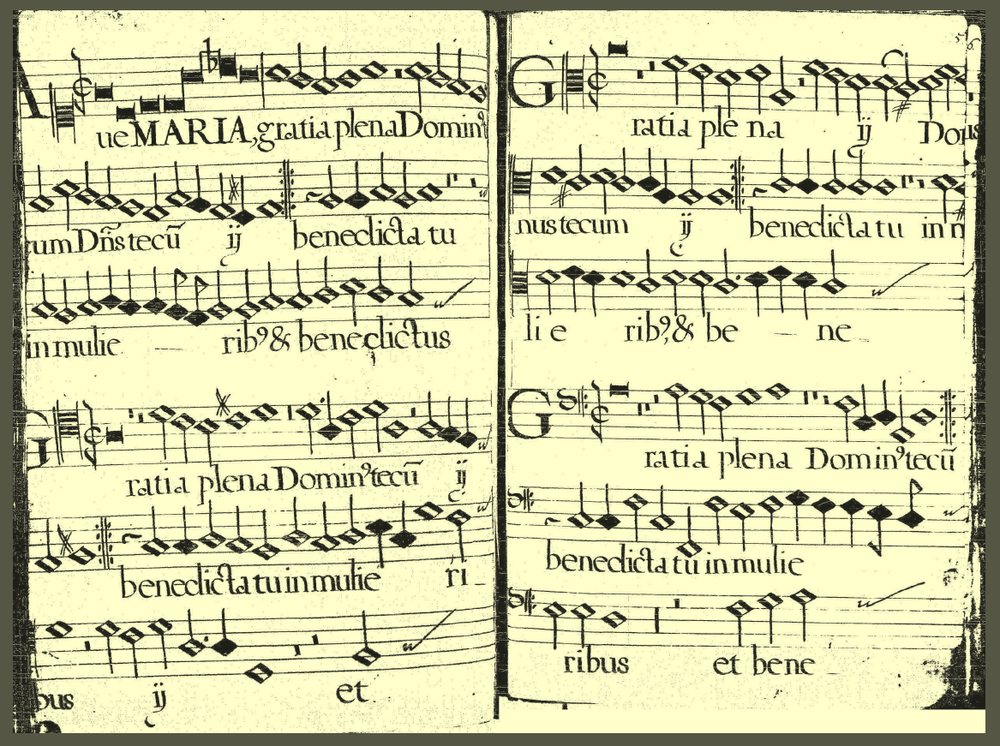 AueMARIA,gratia plena Dominꝰ
tum Dn̄s tecū ij benedicta tu
in mulie ribꝰ & benedictus
Gratia plena Dominꝰ tecū ij
benedicta tu in mulie ri
bus ij et
Gratia ple na ij Domi
nus tecum ij benedicta tu in
li e ribꝰ, & be ne
Gratia plena Dominꝰ tecū
benedicta tu in mulie
ribus et bene